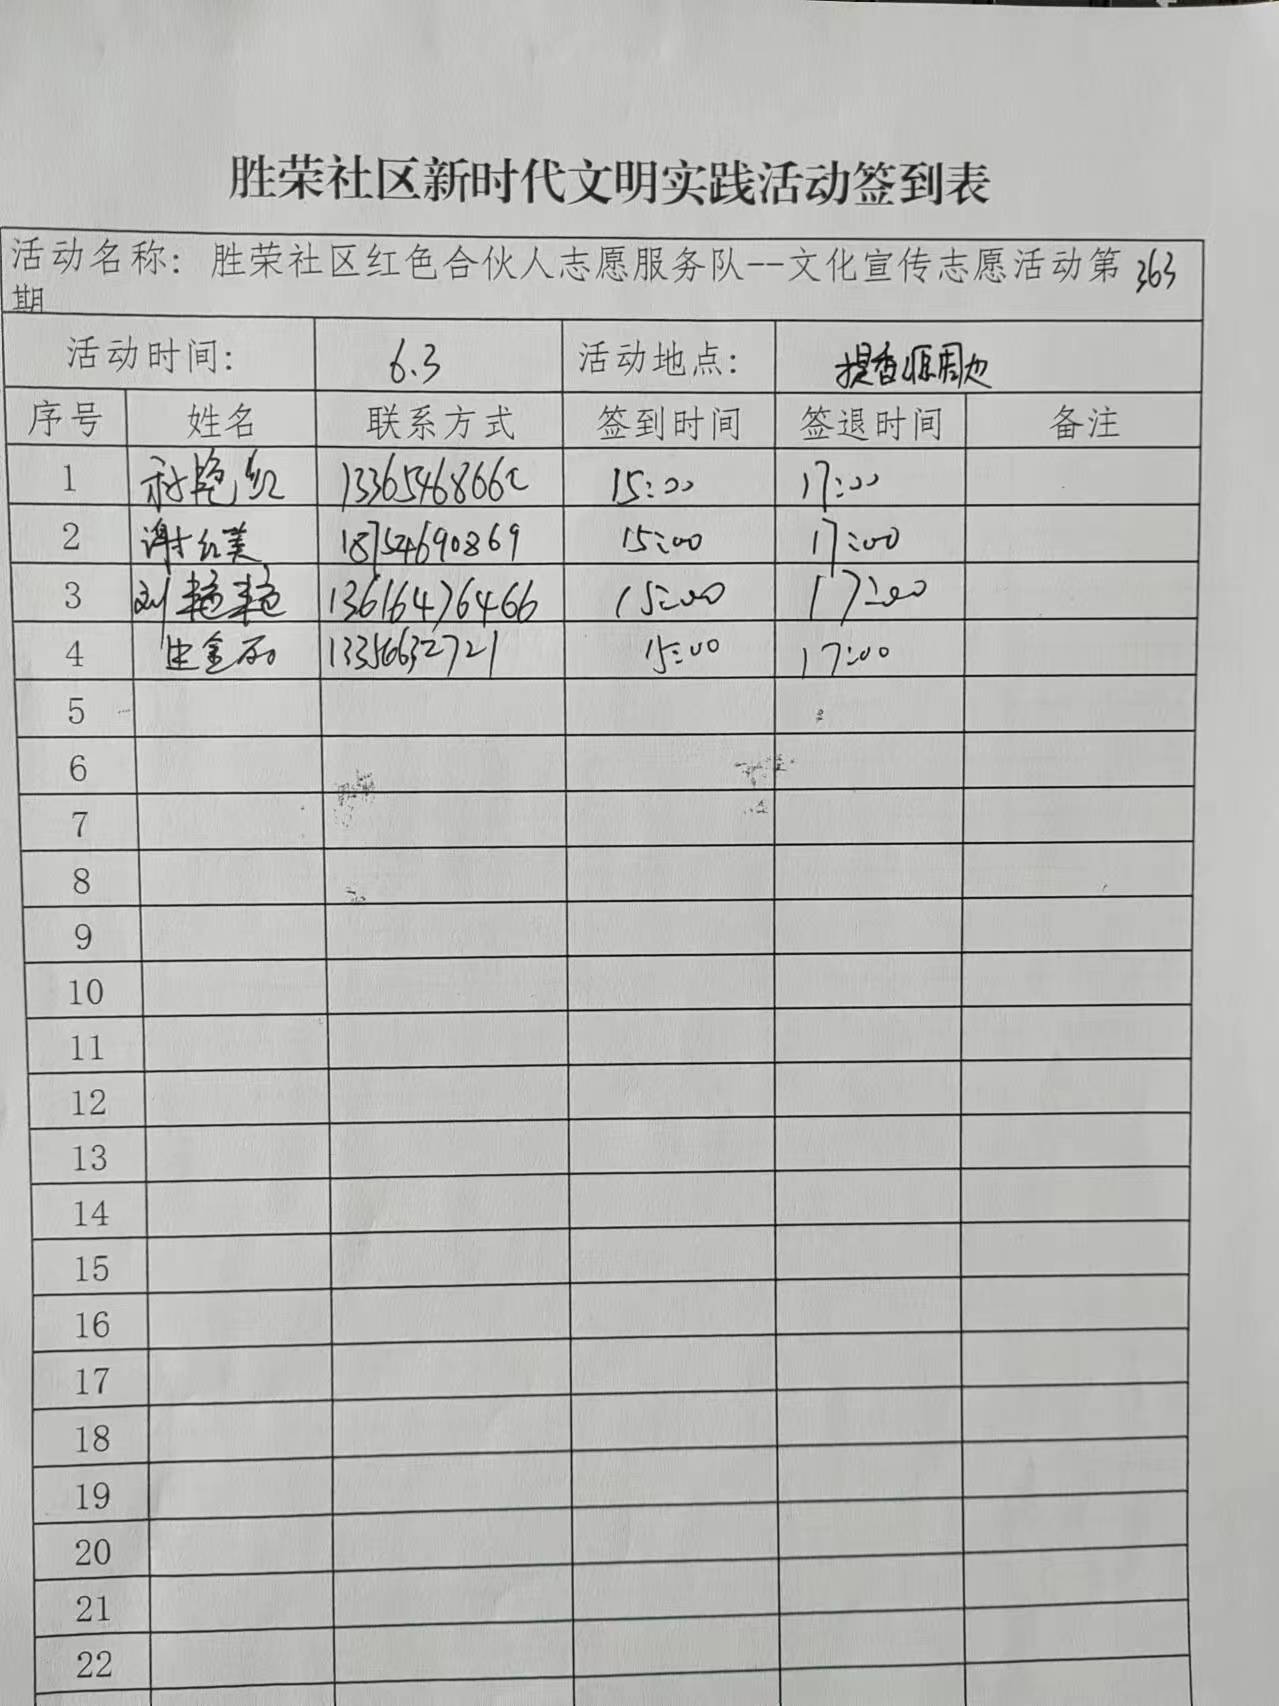 胜荣社区新时代文明实践活动签到表
活动名称：胜荣社区红色合伙人志愿服务队--文化宣传志愿活动第363
期
活动时间： 6.3 活动地点： 提香源周边
序号 姓名 联系方式 签到时间 签退时间 备注
1 艳红 1336546866 15:00 17:00
2 谢红美 18754690869 15:00 17:00
3 刘艳艳 13616476466 15:00 17:00
4 金 13356632721 15:00 17:00
5
6
7
8
9
10
11
12
13
14
15
16
17
18
19
20
21
22